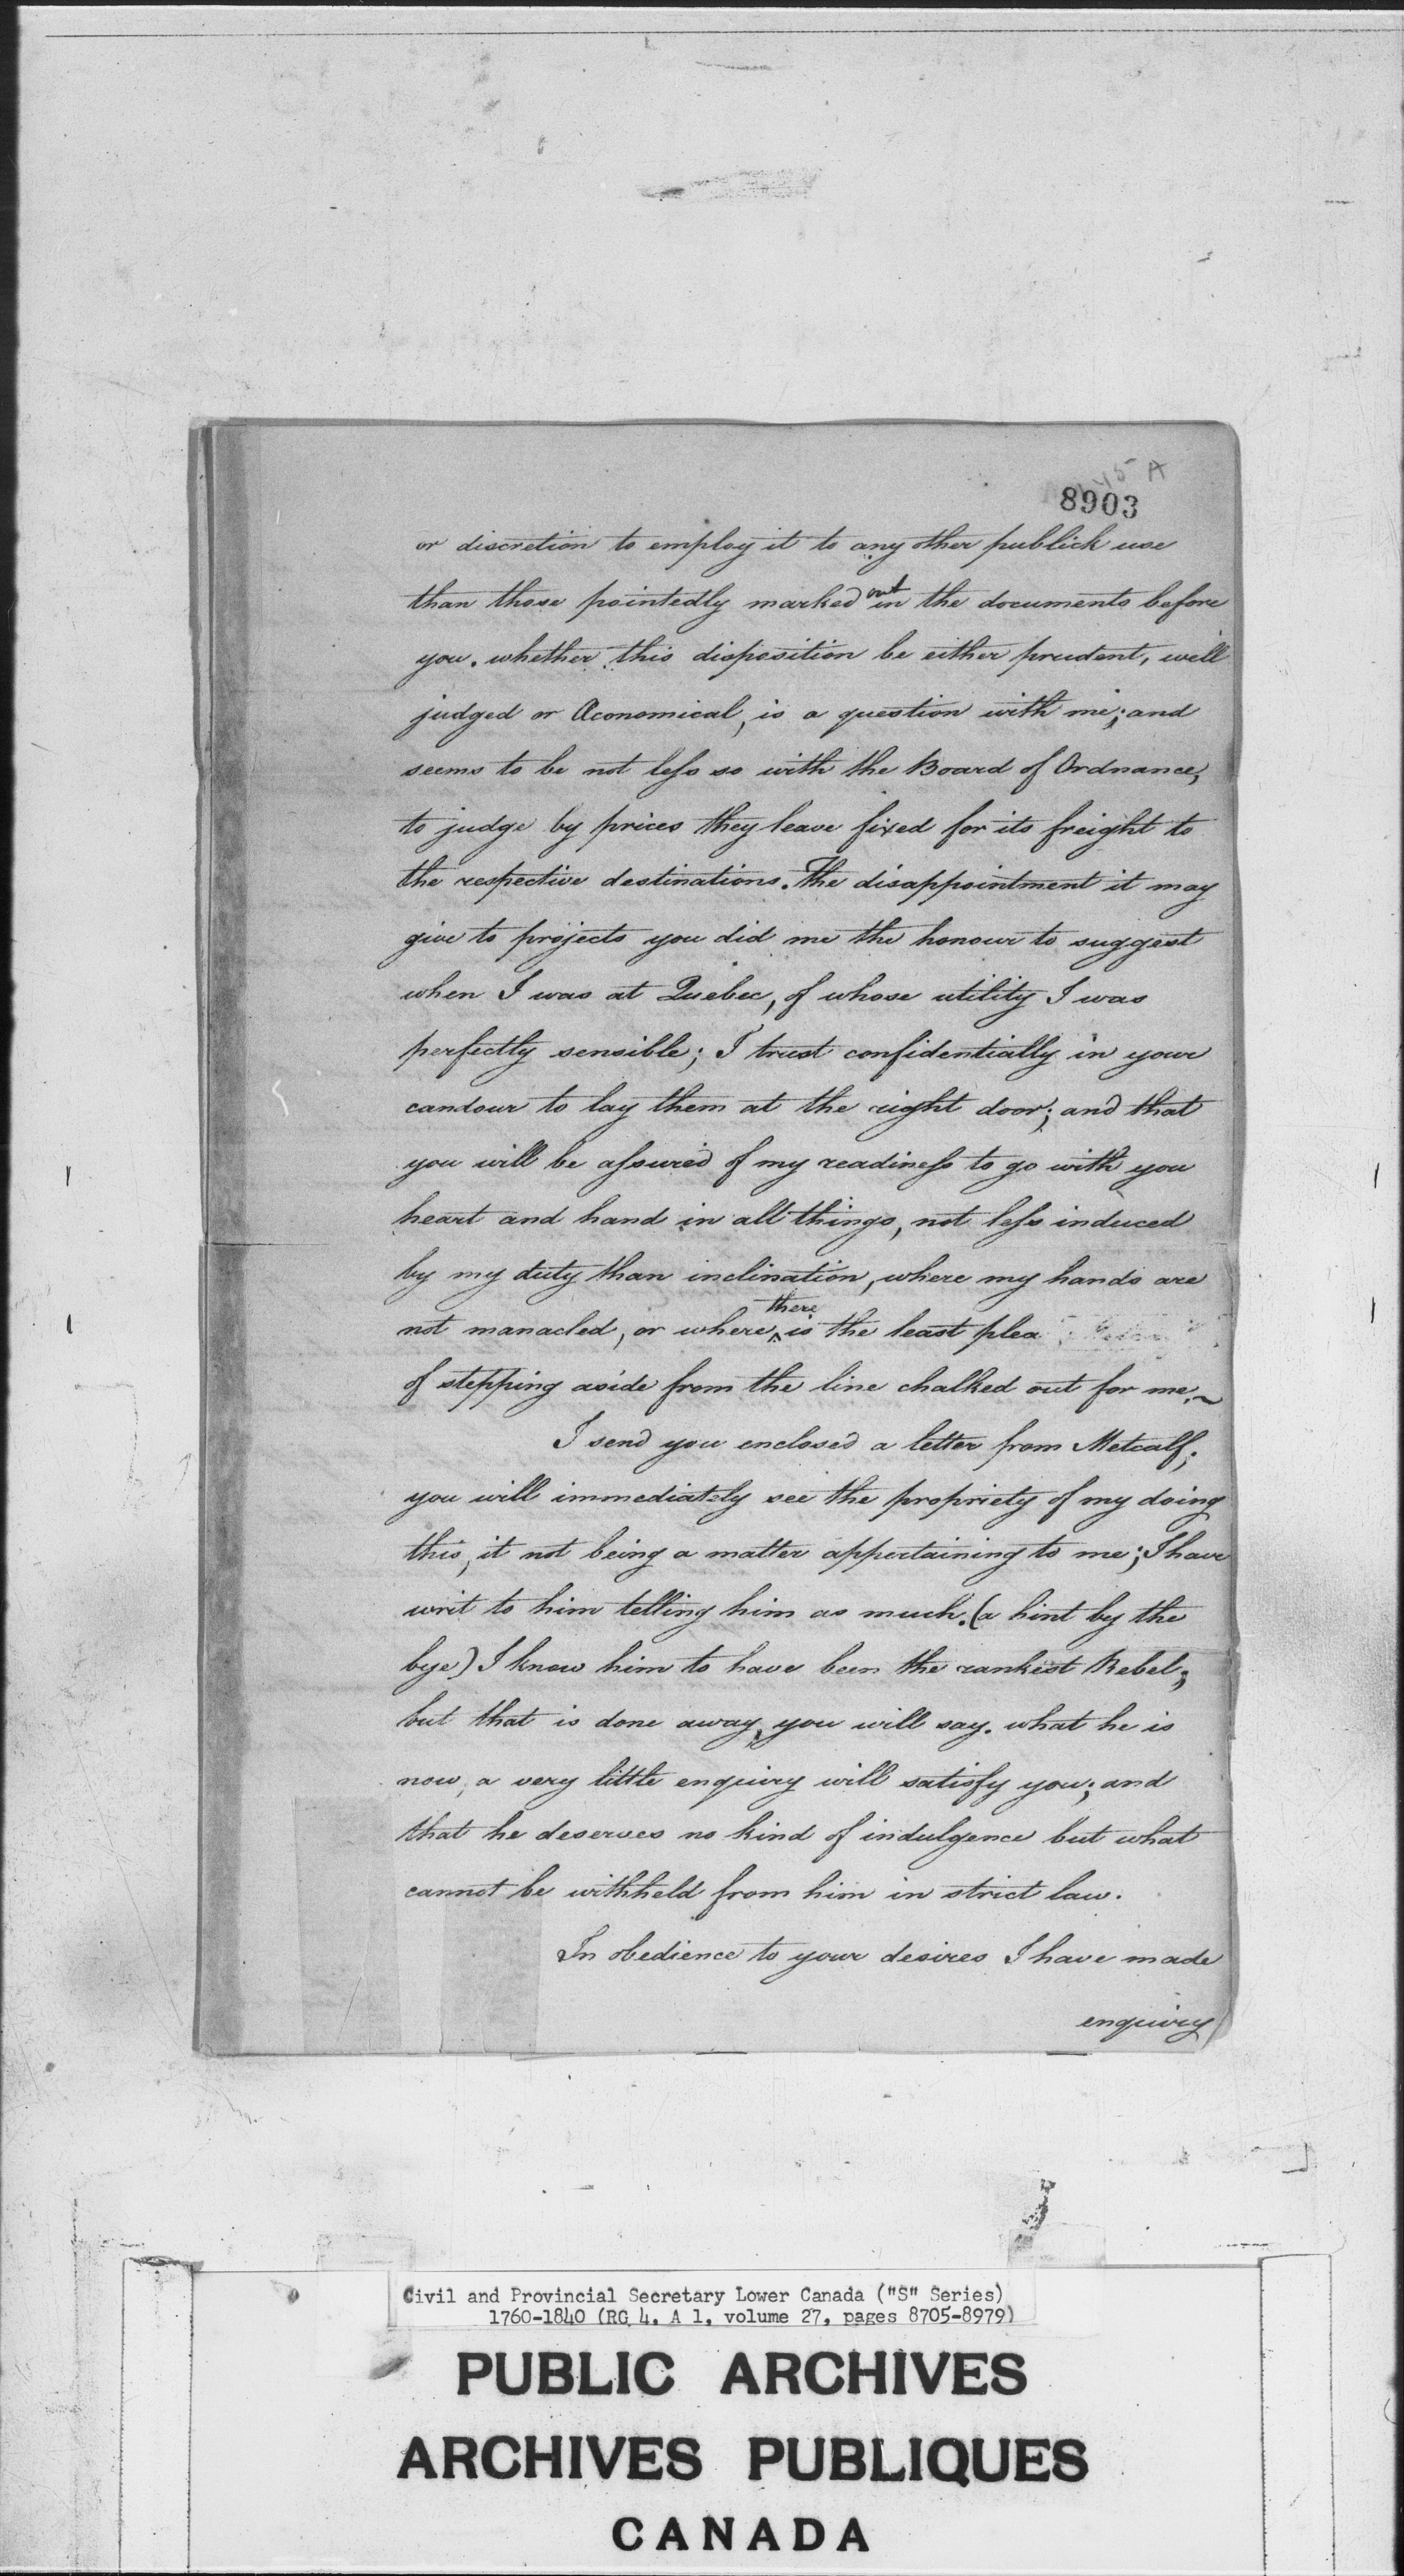 45 A
8903
or discretion to employ it to any other publick use
than those pointedly marked out in the documents before
you. whether this disposition be either prudent, well
judged or Œconomical, is a question with me; and
seems to be not less so with the Board of Ordnance,
to judge by prices they leave fixed for its freight to
the respective destinations. The disappointment it may
give to projects you did me the honour to suggest
when I was at Quebec, of whose utility I was
perfectly sensible; I trust confidentially in your
candour to lay them at the right door; and that
you will be assured of my readiness to go with you
heart and hand in all things, not less induced
by my duty than inclination, where my hands are
not manacled, or where there is the least plea
of stepping aside from the line chalked out for me.~
I send you enclosed a letter from Metcalf;
you will immediately see the propriety of my doing
this, it not being a matter appertaining to me; I have
writ to him telling him as much. (a hint by the
bye) I know him to have been the rankest Rebel;
but that is done away, you will say. what he is
now, a very little enquiry will satisfy you; and
that he deserves no kind of indulgence but what
cannot be withheld from him in strict law.
In obedience to your desires I have made
enquiry
Civil and Provincial Secretary Lower Canada ("S" Series)
1760-1840 (RG 4, A 1, volume 27, pages 8705-8979)
PUBLIC ARCHIVES
ARCHIVES PUBLIQUES
CANADA